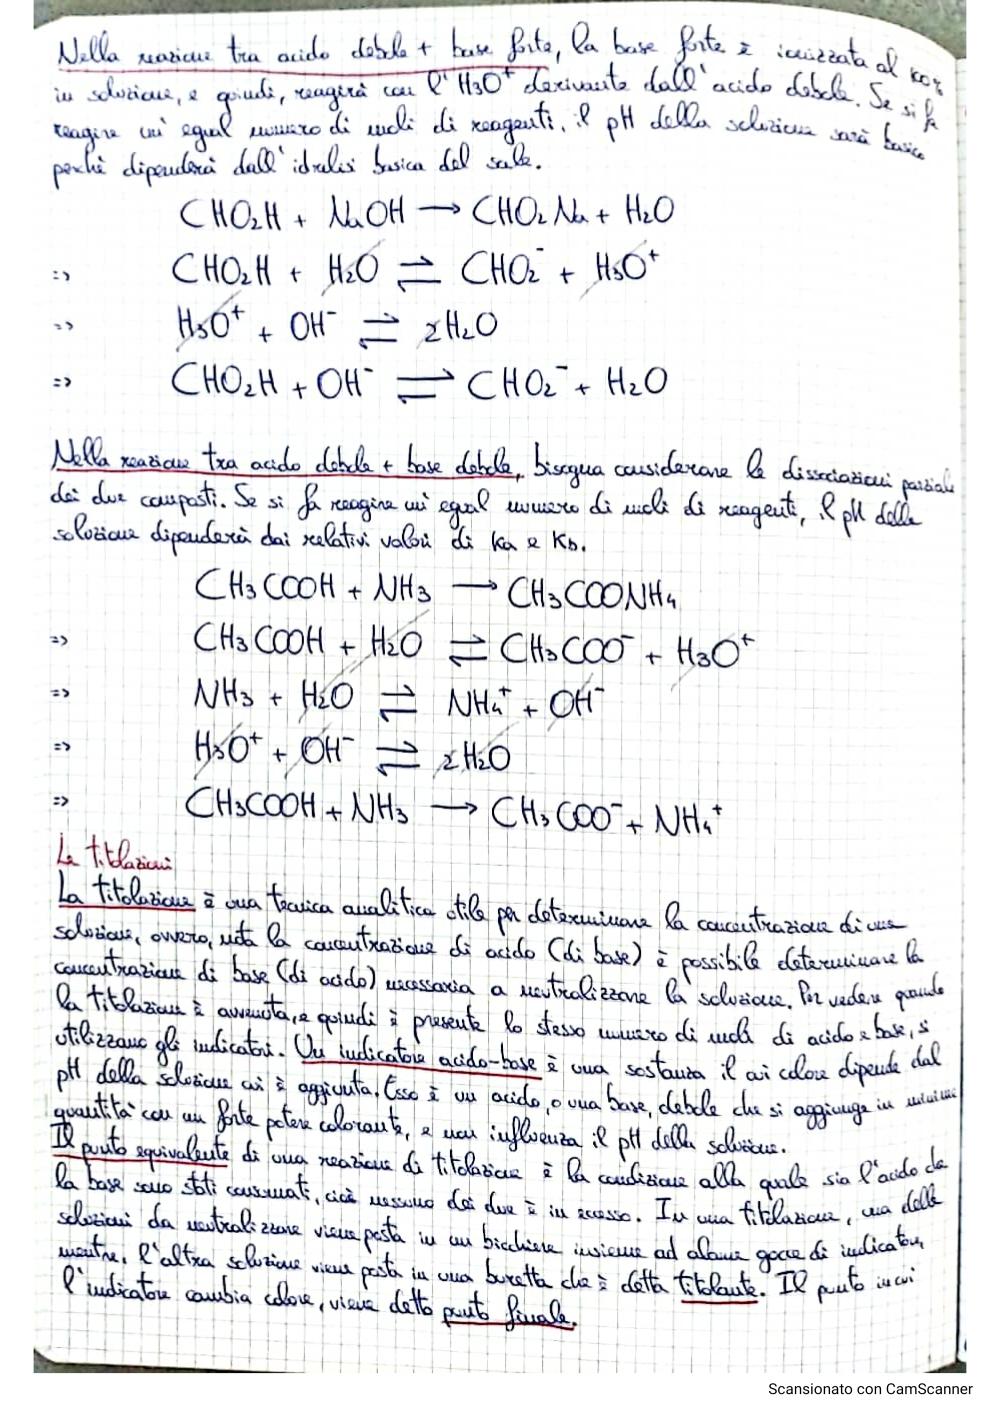 Nella reazione tra acido debole + base forte, la base forte è ionizzata al 100%
in soluzione, e quindi, reagirà con l'H₃O⁺ derivante dall'acido debole. Se si fa
reagire un'egual numero di moli di reagenti, il pH della soluzione sarà basico
perché dipenderà dall'idrolisi basica del sale.
CHO₂H + NaOH → CHO₂Na + H₂O
=> CHO₂H + H₂O ⇌ CHO₂⁻ + H₃O⁺
=> H₃O⁺ + OH⁻ ⇌ 2H₂O
=> CHO₂H + OH⁻ ⇌ CHO₂⁻ + H₂O
Nella reazione tra acido debole + base debole, bisogna considerare le dissociazioni parziale
dei due composti. Se si fa reagire un'egual numero di moli di reagenti, il pH della
soluzione dipenderà dai relativi valori di Ka e Kb.
CH₃COOH + NH₃ → CH₃COONH₄
=> CH₃COOH + H₂O ⇌ CH₃COO⁻ + H₃O⁺
=> NH₃ + H₂O ⇌ NH₄⁺ + OH⁻
=> H₃O⁺ + OH⁻ ⇌ 2H₂O
=> CH₃COOH + NH₃ → CH₃COO⁻ + NH₄⁺
Le titolazioni
La titolazione è una tecnica analitica utile per determinare la concentrazione di una
soluzione, ovvero, nota la concentrazione di acido (di base) è possibile determinare la
concentrazione di base (di acido) necessaria a neutralizzare la soluzione. Per vedere quando
la titolazione è avvenuta, e quindi è presente lo stesso numero di moli di acido e base, si
utilizzano gli indicatori. Un indicatore acido-base è una sostanza il cui colore dipende dal
pH della soluzione cui è aggiunta. Esso è un acido, o una base, debole che si aggiunge in minime
quantità con un forte potere colorante, e non influenza il pH della soluzione.
Il punto equivalente di una reazione di titolazione è la condizione alla quale sia l'acido che
la base sono stati consumati, cioè nessuno dei due è in eccesso. In una titolazione, una delle
soluzioni da neutralizzare viene posta in un bicchiere insieme ad alcune gocce di indicatore,
mentre, l'altra soluzione viene posta in una buretta che è detta titolante. Il punto in cui
l'indicatore cambia colore, viene detto punto finale.
Scansionato con CamScanner